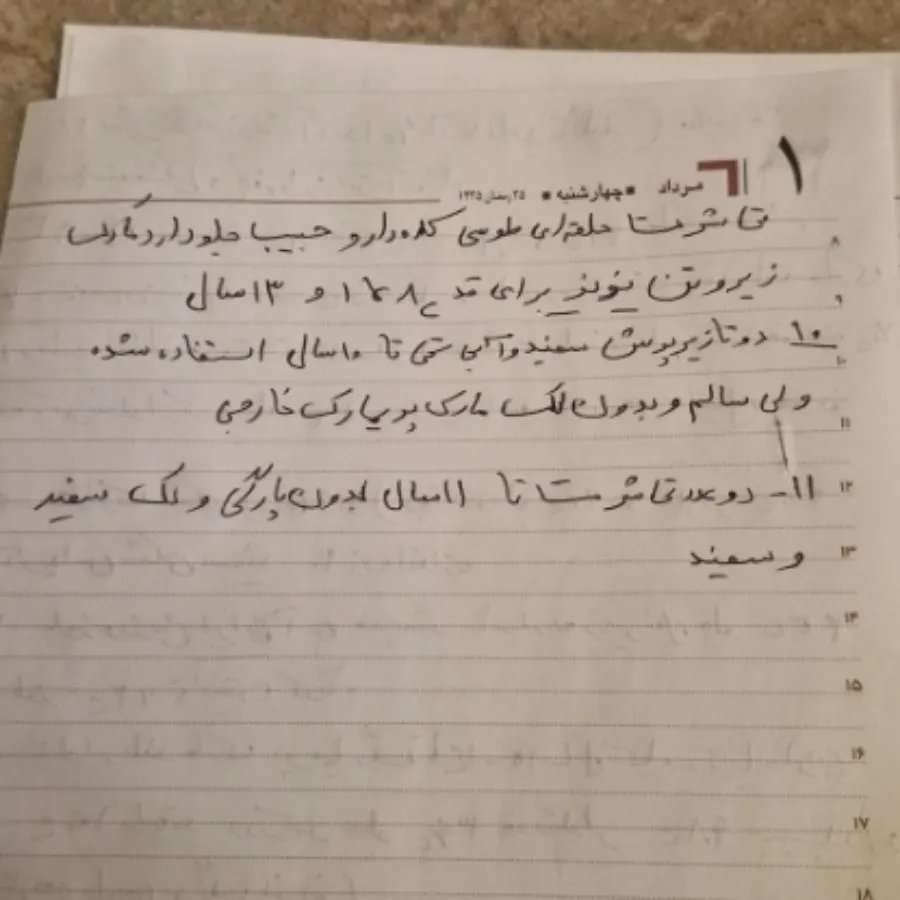 ۱ مرداد ▪ چهارشنبه ▪ ۲۵ رمضان ۱۴۳۵
تی شرت حلقه‌ای طوسی کلاه دار و جیب جلو دارد مارک
زیرو تن برای قد ۱۶۸ و ۱۳ سال
۱۰ دو تا زیرپوش سفید و آبی حتی تا ۱۰ سال استفاده شده
ولی سالم و بدون لک مارک خارجی
۱۱- دو عدد تی شرت تا ۱۱ سال بدون پارگی و لک سفید
و سفید
۸
۹
۱۰
۱۱
۱۲
۱۳
۱۴
۱۵
۱۶
۱۷
۱۸